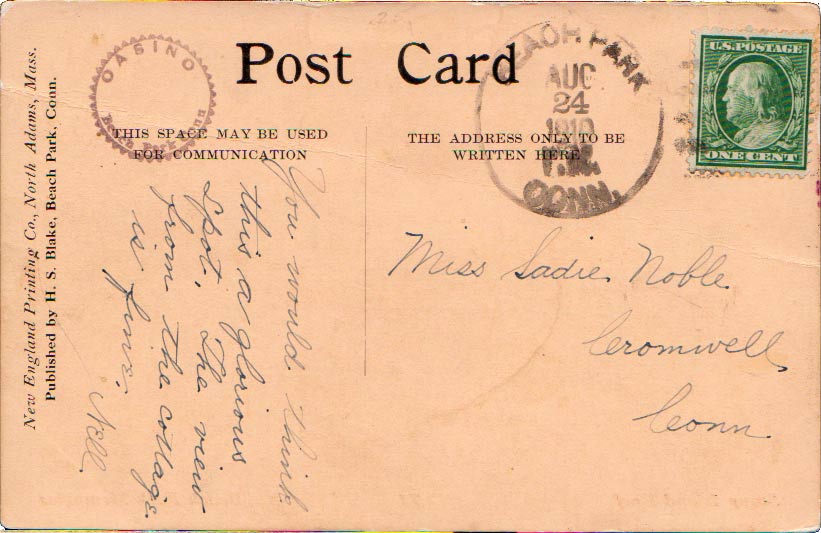 New England Printing Co., North Adams, Mass.
Published by H. S. Blake, Beach Park, Conn.
CASINO
Beach Park Conn
Post Card
THIS SPACE MAY BE USED
FOR COMMUNICATION
THE ADDRESS ONLY TO BE
WRITTEN HERE
BEACH PARK
AUG
24
1910
P.M.
CONN.
U.S. POSTAGE
ONE CENT
You would think
this a glorious
spot. The view
from the cottage
is fine.
Nell.
Miss Sadie Noble
Cromwell
Conn.